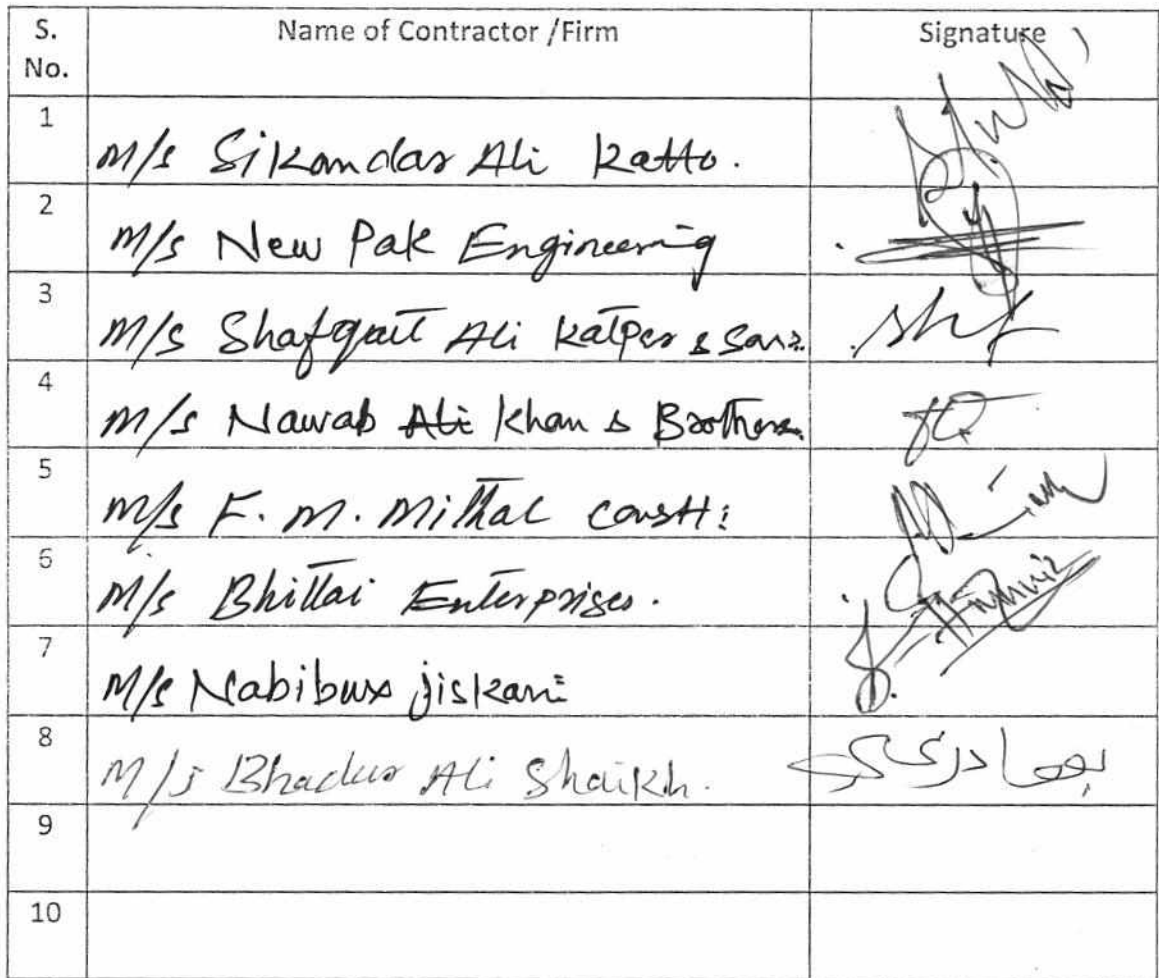 S. No. Name of Contractor /Firm Signature
1 M/s Sikandar Ali Katto.
2 M/s New Pak Engineering
3 M/s Shafqait Ali Katper & Sons. shf
4 M/s Nawab Ali Khan & Brothers.
5 M/s F. M. Mithal Constt:
6 M/s Bhittai Enterprises.
7 M/s Nabibux jiskani
8 M/s Bhadur Ali Shaikh.
9
10